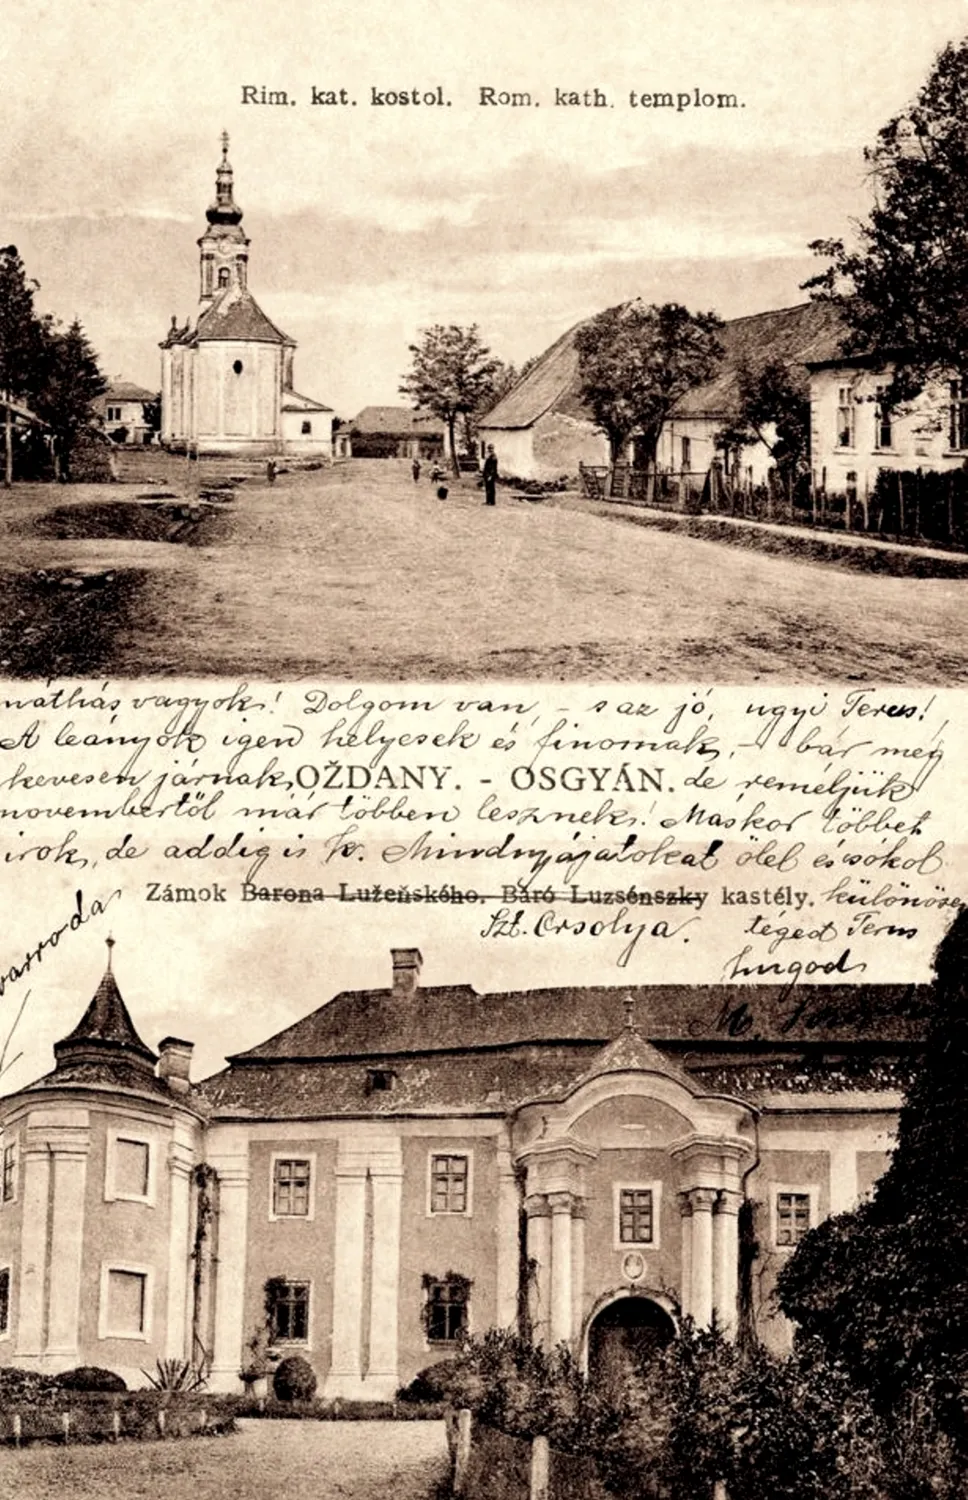 Rim. kat. kostol. Rom. kath. templom.
náthás vagyok! Dolgom van, - s az jó, ugyi Terus!
A leányok igen helyesek és finomak, - bár még
kevesen járnak, OŽDANY. - OSGYÁN. de reméljük
novembertől már többen lesznek! Máskor többet
irok, de addig is Mindnyájatokat ölel és csókol
Zámok Barona Lužeňského. Báró Luzsénszky kastély. különösen
Szt. Orsolya. téged Terus
varroda
M.